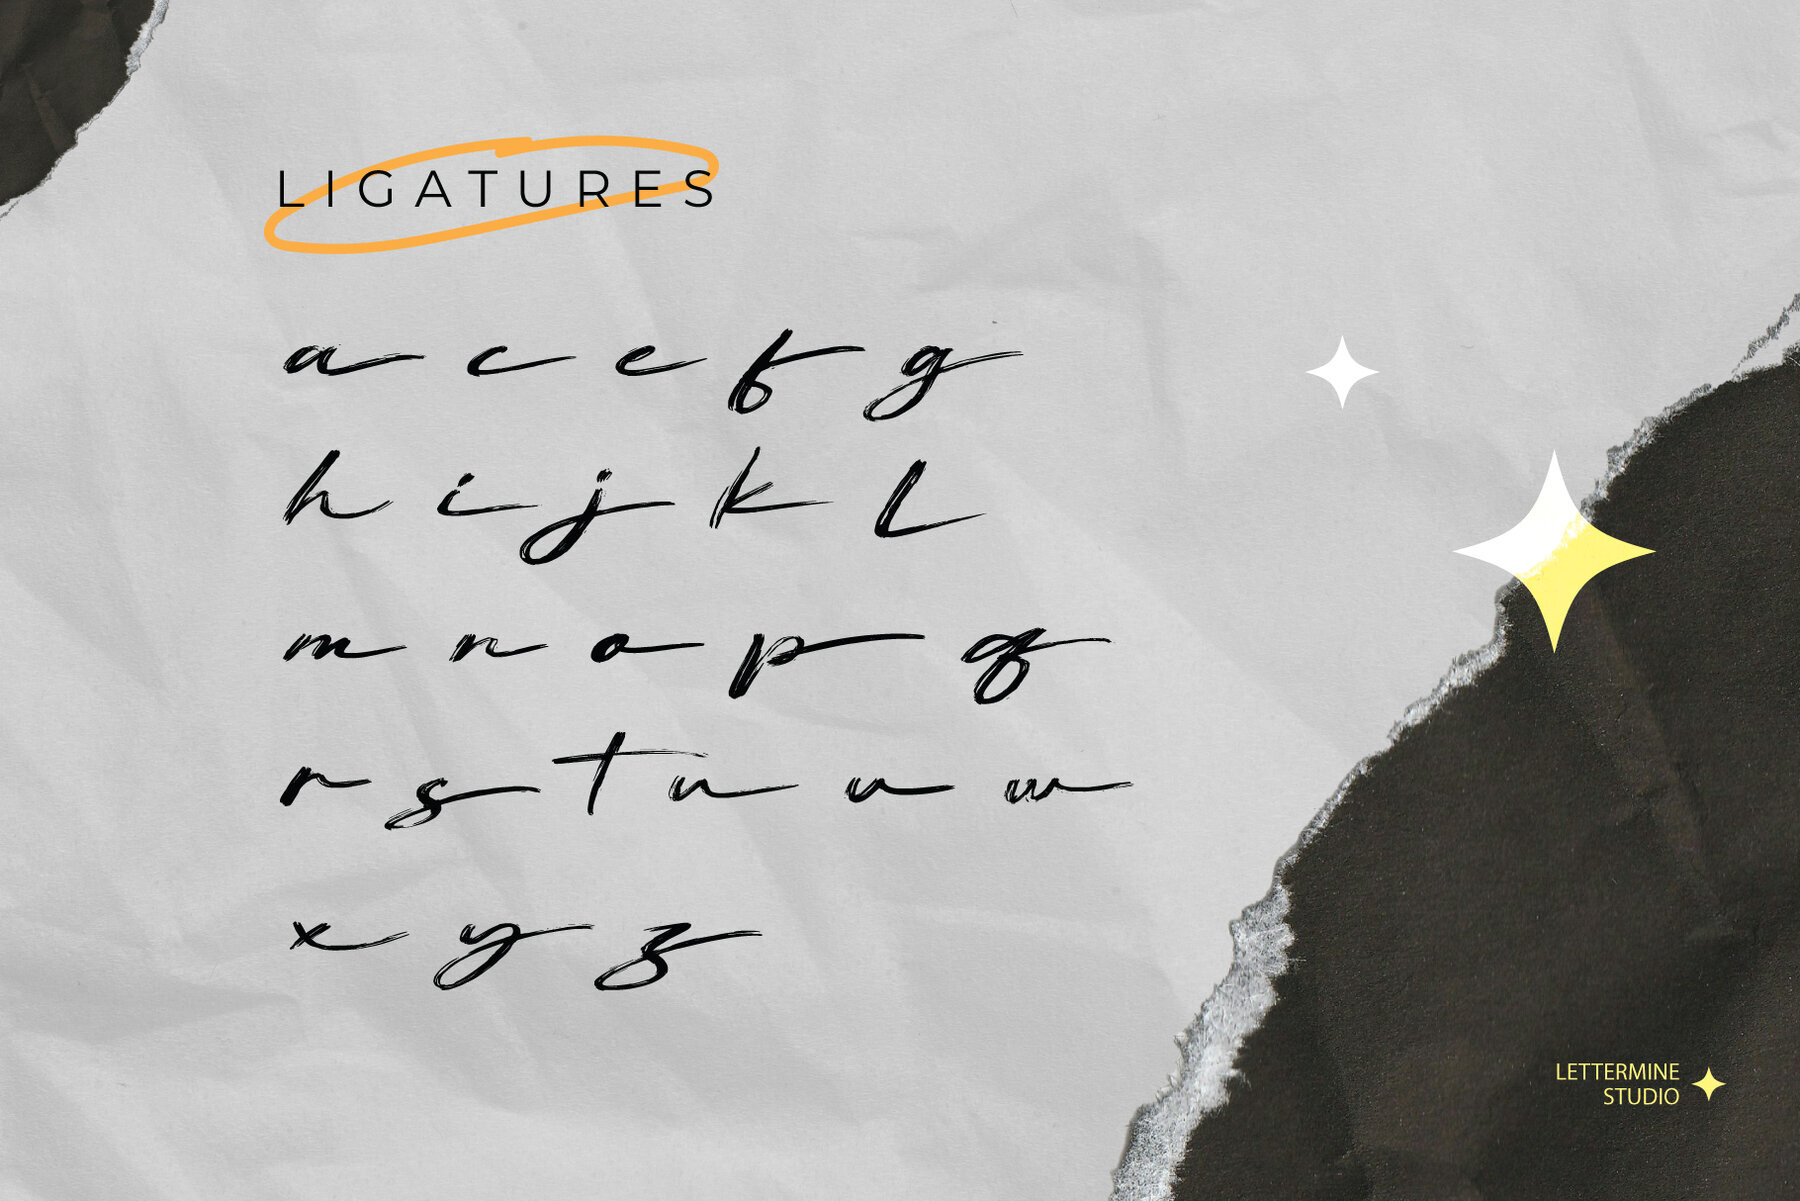 LIGATURES
a c e f g
h i j k l
m n o p q
r s t u v w
x y z
LETTERMINE
STUDIO